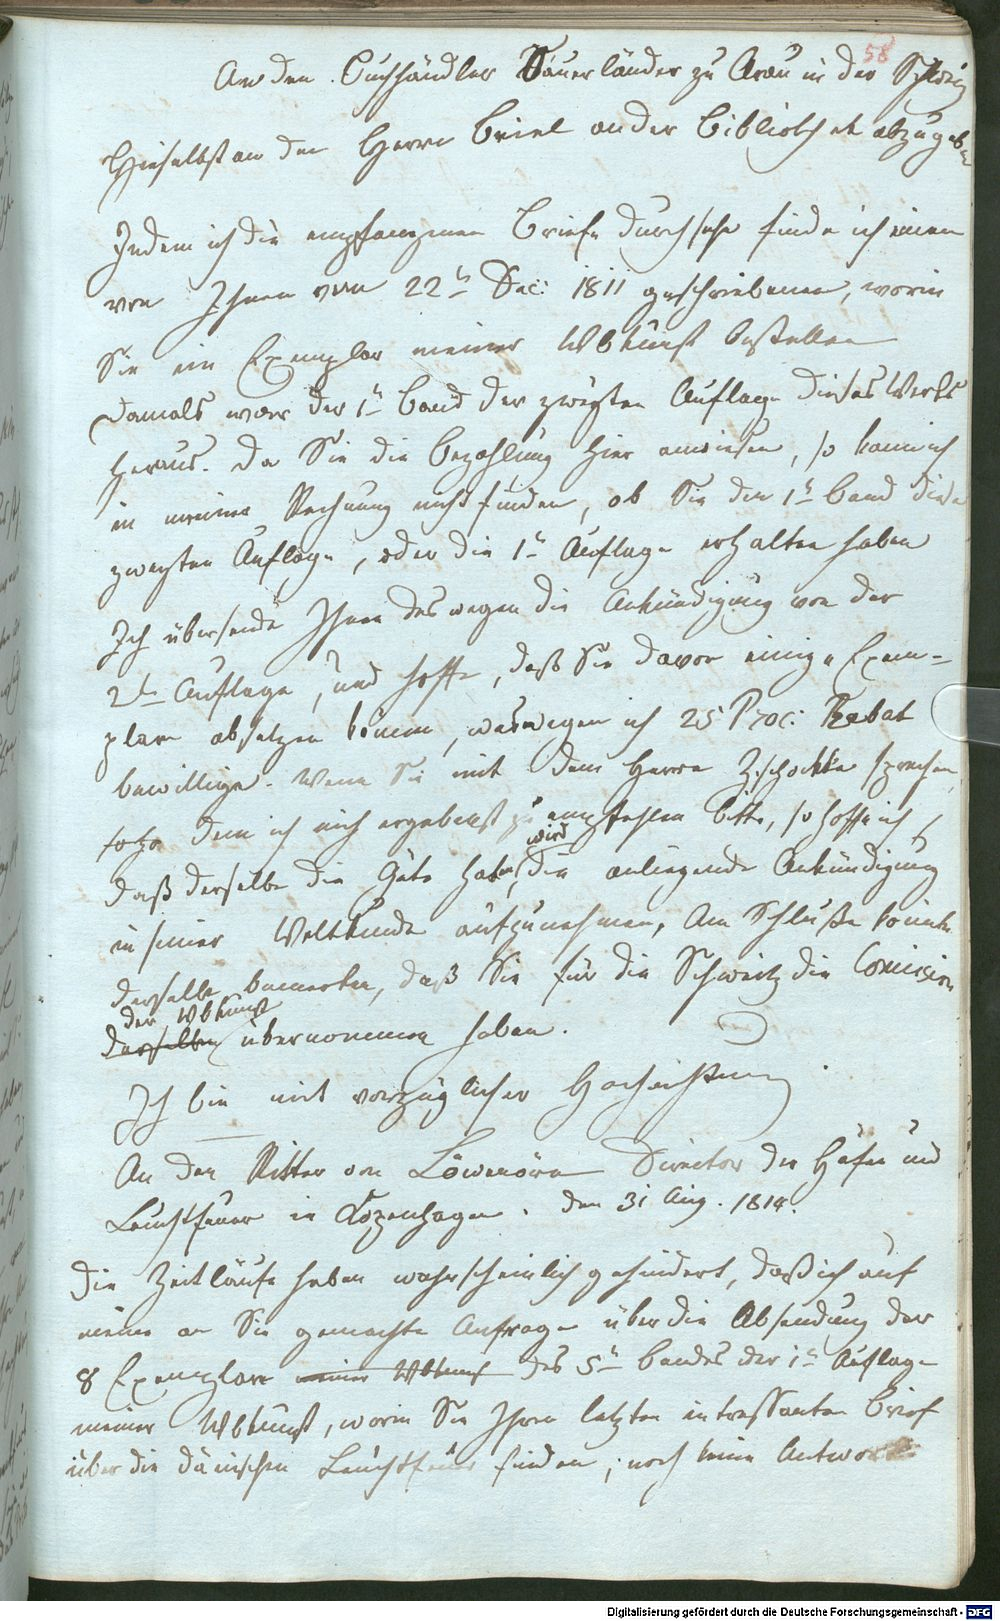 58
An den Buchhändler Sauerländer zu Arau in der Schweiz
Hieselbst an den Herrn an der Bibliothek abzugeben
Indem ich die empfangenen Briefe durchsehe finde ich einen
von Ihnen vom 22n Dec: 1811 geschriebenen, worin
Sie ein Exemplar meiner Wbkunst bestellen
damals war der 1e Band der zweyten Auflage dieses Werks
heraus. Da Sie die Bezahlung hier anwiesen, so kann ich
in meiner Rechnung nicht finden, ob Sie den 1n Band dieser
zweyten Auflage, oder die 1e Auflage erhalten haben
Ich übersende Ihnen deswegen die Ankündigung von der
2ten Auflage, und hoffe, daß Sie davon einige Exem-
plare absetzen können, weswegen ich 25 Proc: Rabat
bewillige. Wenn Sie mit dem Herrn Zschokke sprechen,
dem ich mich ergebenst zu empfehlen bitte, so hoffe ich
daß derselbe die Güte haben wird, die anliegende Ankündigung
in seiner Weltkunde aufzunehmen, Am Schluße könnte
derselbe bemerken, daß Sie für die Schweitz die Comision
der Wbkunst
derselben übernommen haben.
Ich bin mit vorzüglicher Hochachtung
An den Ritter von Löwenörn Director der Häfen und
Leuchtfeuer in Kopenhagen. den 31 Aug. 1814.
Die Zeitläufe haben wahrscheinlich gehindert, daß ich auf
meine an Sie gemachte Anfrage über die Absendung der
8 Exemplare meiner Wbkunst des 5n Bandes der 1n Auflage
meiner Wbkunst, worin Sie Ihren letzten intressanten Brief
über die dänischen Leuchtfeuer finden, noch keine Antwort
Digitalisierung gefördert durch die Deutsche Forschungsgemeinschaft - DFG